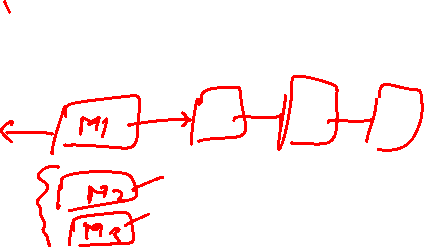 M1
M2
M3